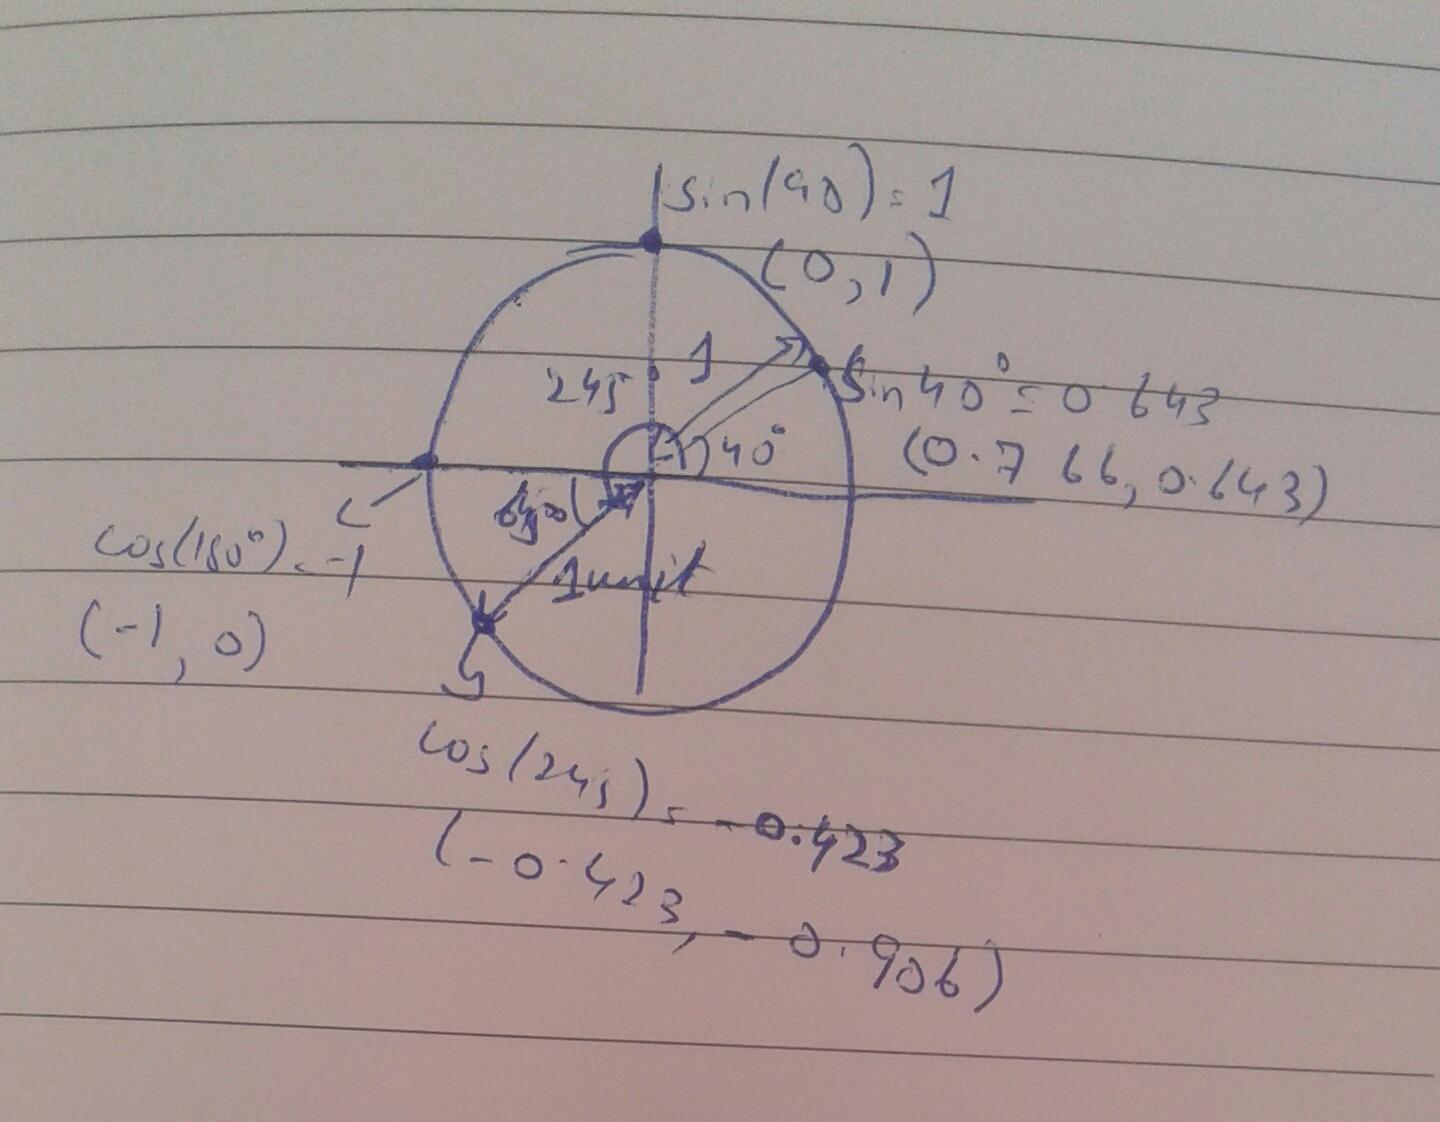 sin(90) = 1
(0,1)
1
245
sin 40° = 0.643
40°
(0.766, 0.643)
65°
cos(180°) = -1
1 unit
(-1, 0)
cos(245) = -0.423
(-0.423, -0.906)